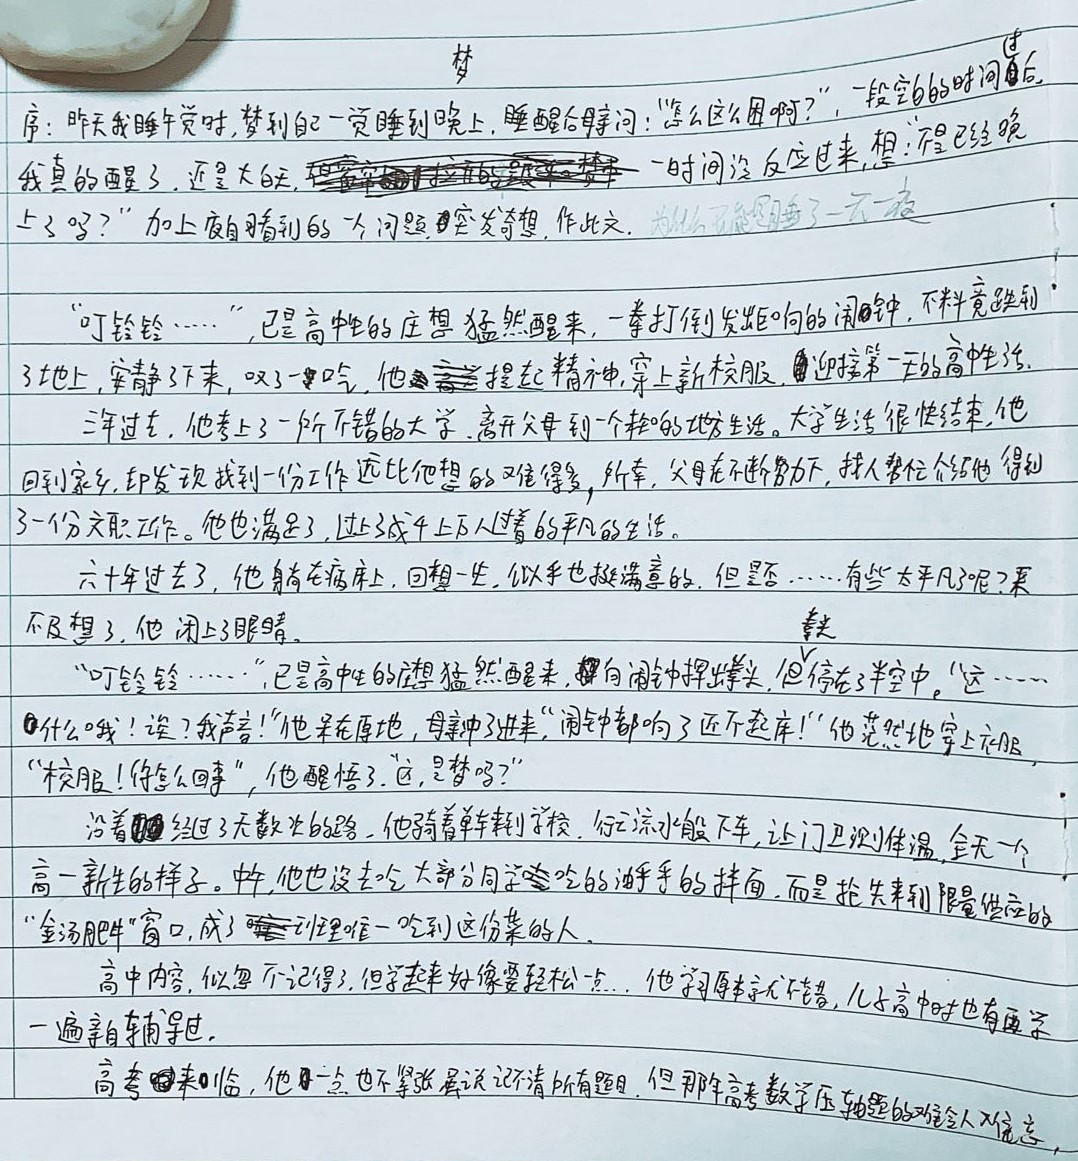 梦
序：昨天我睡午觉时,梦到自己一觉睡到晚上,睡醒后母亲问："怎么这么困啊?",一段空白的时间过后,
我真的醒了,还是大白天,一时间没反应过来,想："不是已经晚
上了吗?"加上夜自习看到的一个问题,突发奇想,作此文. 为什么不能是睡了一天一夜
"叮铃铃……",已是高中生的庄想猛然醒来,一拳打倒发出巨响的闹钟,不料竟跌到
了地上,安静了下来,叹了一口气,他提起精神,穿上新校服,迎接第一天的高中生活.
三年过去,他考上了一所不错的大学,离开父母到一个陌生的地方生活。大学生活很快结束,他
回到家乡,却发现找到一份工作远比他想的难得多,所幸,父母在不断努力下,找人帮忙介绍他得到
了一份文职工作。他也满足了,过上了成千上万人过着的平凡的生活。
六十年过去了,他躺在病床上,回想一生,似乎也挺满意的,但是否……有些太平凡了呢?来
不及想了,他闭上了眼睛。
"叮铃铃……",已是高中生的庄想猛然醒来,向闹钟挥出拳头,但拳头停在了半空中,"这……
什么?我!诶?我声音!"他呆在原地,母亲冲了进来"闹钟都响了还不起床!"他茫然地穿上衣服,
"校服!怎么回事",他醒悟了."这,是梦吗?"
沿着经过了无数次的路,他骑着单车来到学校,行云流水般下车,让门卫测体温,全无一个
高一新生的样子。中午,他也没去吃大部分同学吃的油乎乎的拌面,而是抢先来到限量供应的
"金汤肥牛"窗口,成了班里唯一吃到这份菜的人.
高中内容,似忽不记得了,但学起来好像要轻松一点.. 他学习原本就不错,儿子高中时也有再学
一遍亲自辅导过.
高考来临,他一点也不紧张虽说记不清所有题目,但那年高考数学压轴题的难令人难忘,